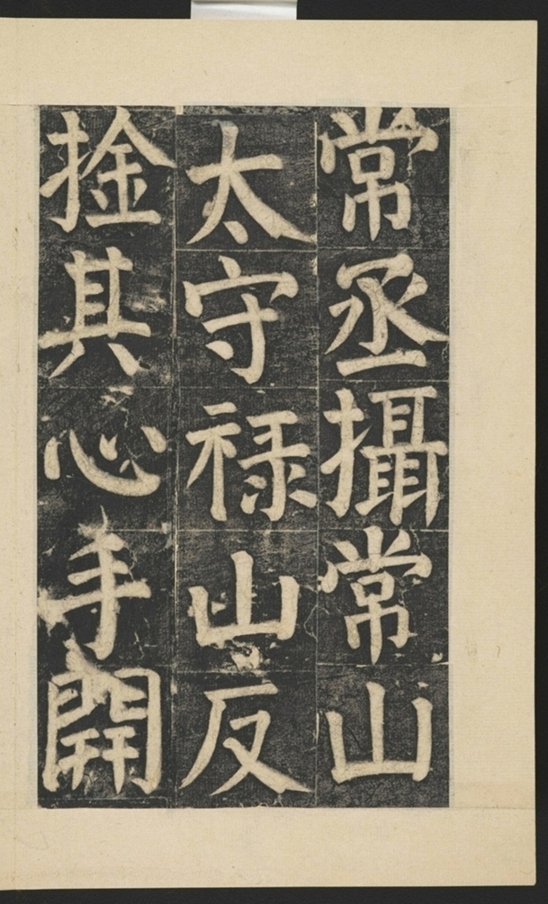 常丞攝常山
太守禄山反
捦其心手開